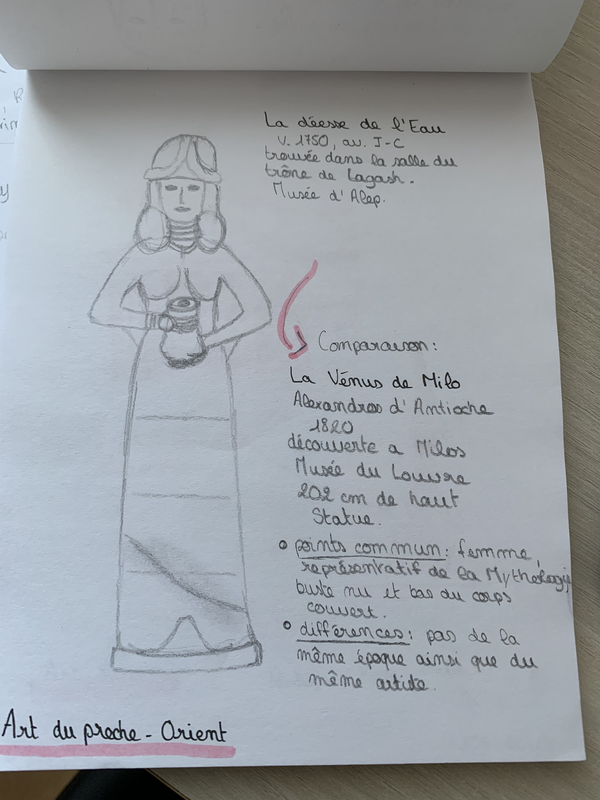 La déesse de l'Eau
V. 1750, av. J-C
trouvée dans la salle du
trône de Lagash.
Musée d'Alep.
Comparaison:
La Vénus de Milo
Alexandros d'Antioche
1820
découverte a Milos
Musée du Louvre
202 cm de haut
Statue.
points commun: femme,
représentratif de la Mythologie
buste nu et bas du corps
couvert.
différences: pas de la
même époque ainsi que du
même artiste.
Art du proche-Orient